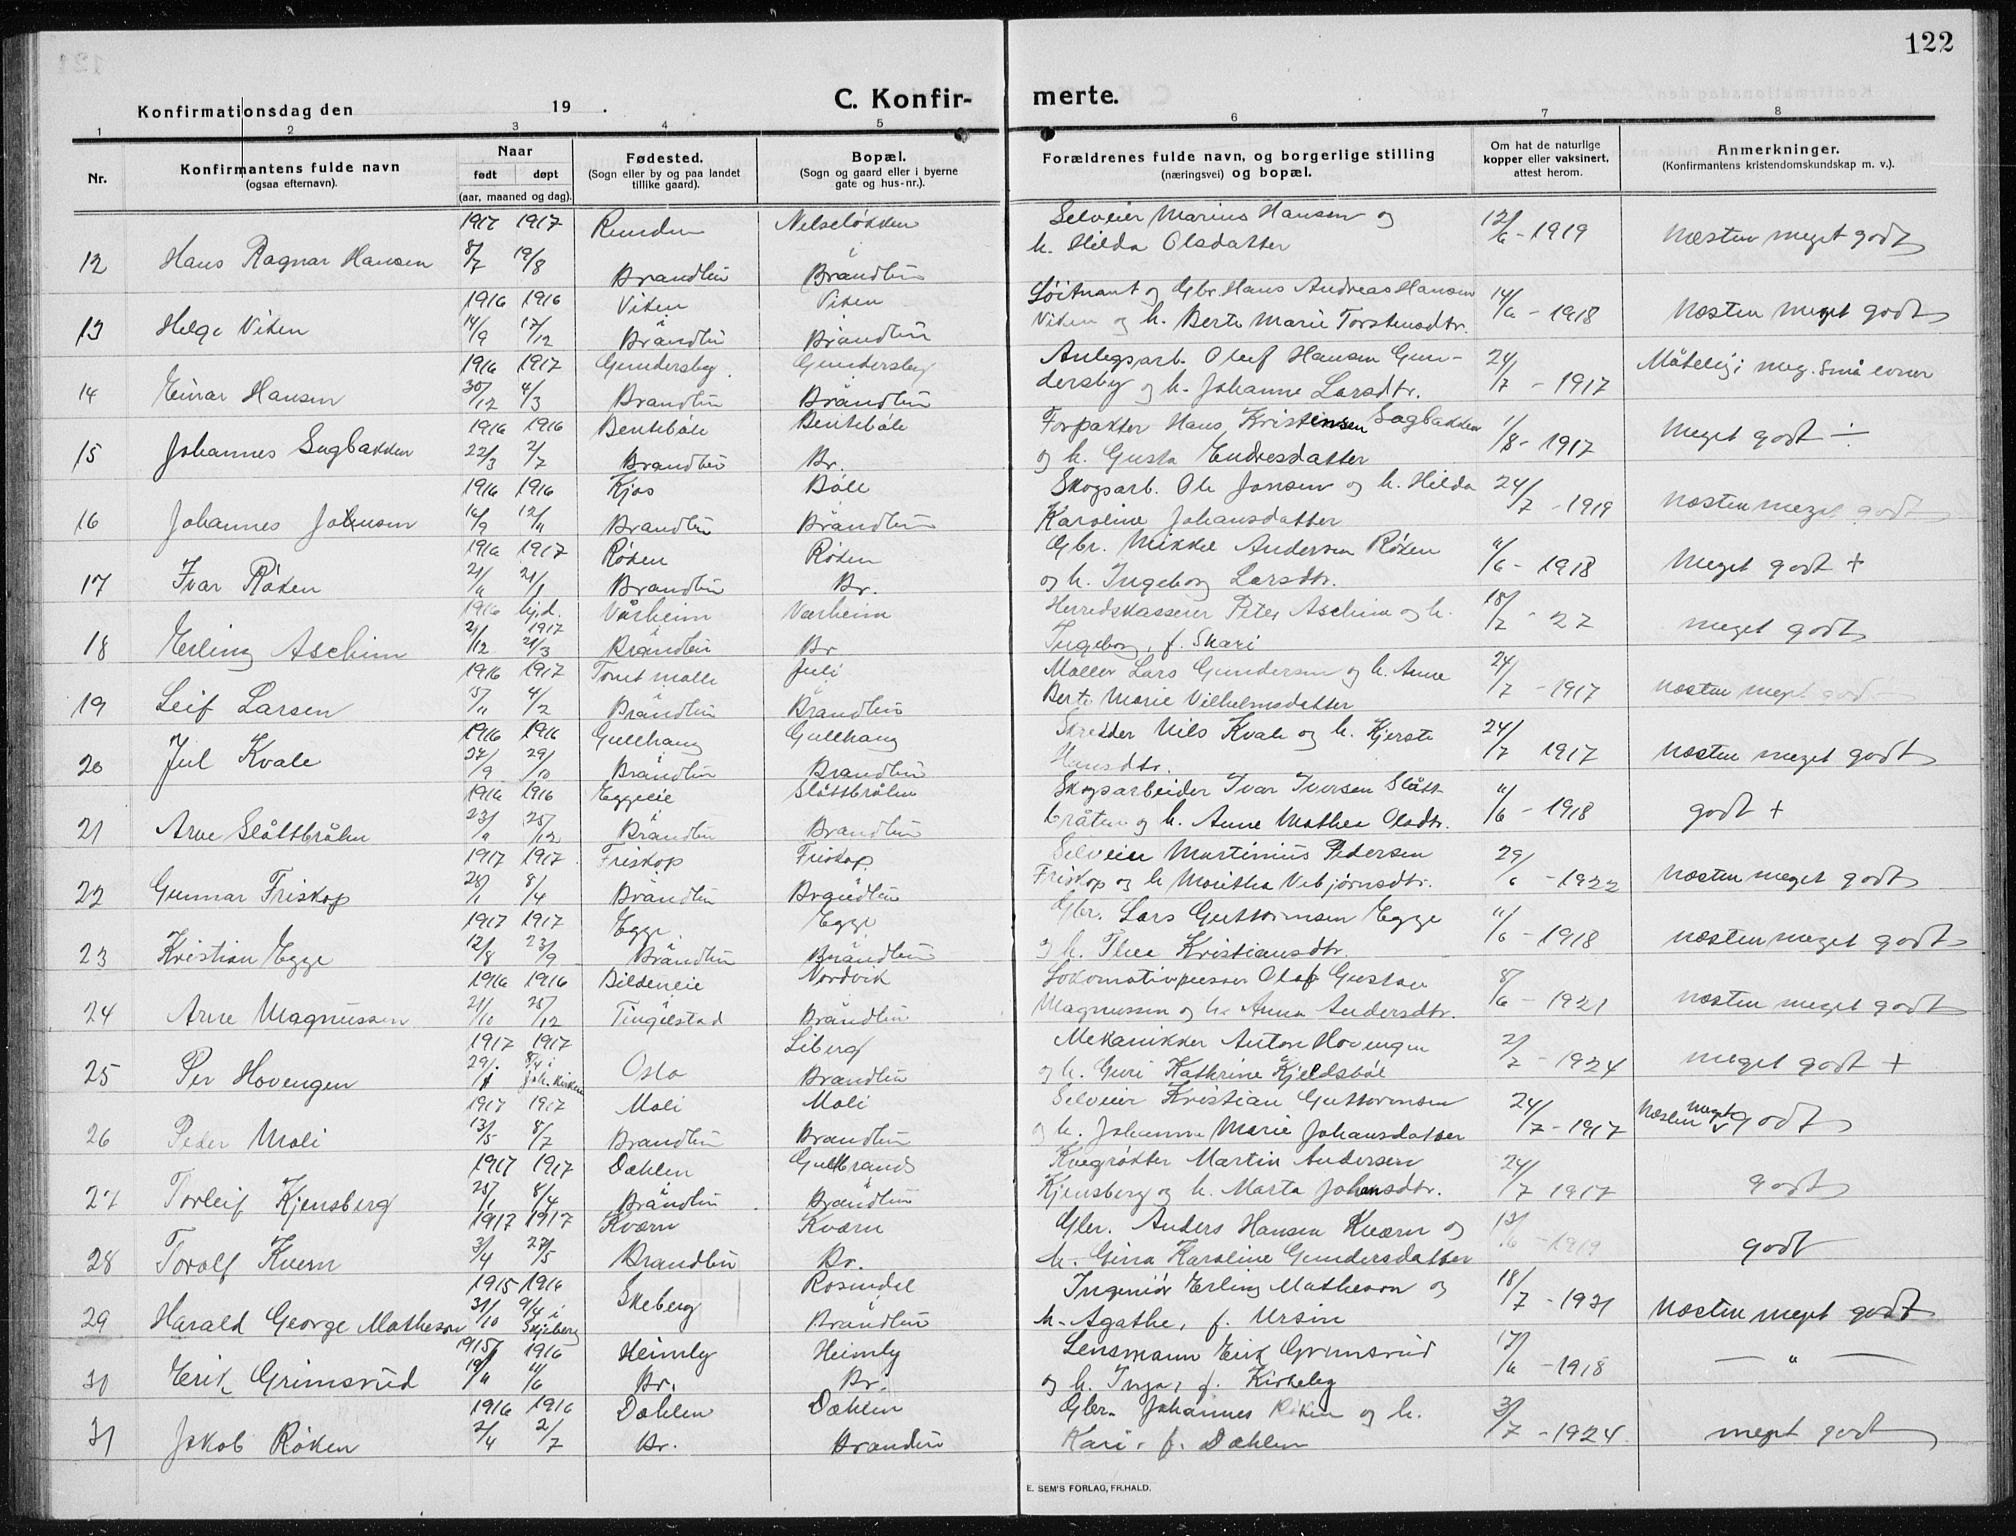 122
Konfirmationsdag den 19 .
C. Konfir- merte.
1 2 3 4 5 6 7 8
Nr.
Konfirmantens fulde navn
(ogsaa efternavn).
Naar
født døpt
(aar, maaned og dag).
Fødested.
(Sogn eller by og paa landet
tillike gaard).
Bopæl.
(Sogn og gaard eller i byerne
gate og hus-nr.).
Forældrenes fulde navn, og borgerlige stilling
(næringsvei) og bopæl.
Om hat de naturlige
kopper eller vaksinert,
attest herom.
Anmerkninger.
(Konfirmantens kristendomskundskap m. v.).
1917 1917 Selveier Marius Hansen og
12 Hans Ragnar Hansen 8/7 19/8 Brandbu Brandbu h. Hilda Olsdatter 12/6 - 1919 næsten meget godt
1916 1916 Viken Viken Løitnant og Gbr. Hans Andreas Hansen
13 Helge Viken 14/9 17/12 Brandbu Brandbu Viken og h. Berte Marie Torstensdtr. 14/6 - 1918 næsten meget godt
1916 1917 Gundersby Gundersby Anlegsarb. Oluf Hansen Gun-
14 Einar Hansen 30/12 4/3 Brandbu Brandbu dersby og h. Johanne Larsdtr. 24/7 - 1917 Måtelig; meg. små evner
1916 1916 Bentebøle Bentebøle Forpakter Hans Kristensen Sagbakken
15 Johannes Sagbakken 22/3 2/7 Brandbu Br. og h. Gusta Endresdatter 1/8 - 1917 meget godt ÷
1916 1916 Kjos Bøle Skogsarb. Ole Jansen og h. Hilda
16 Johannes Johansen 12/11 Brandbu Brandbu Karoline Johansdatter 24/7 - 1919 næsten meget godt
1916 1917 Røken Røken Gbr. Mikkel Andersen Røken
17 Ivar Røken 21/1 Brandbu Br. og h. Ingeborg Larsdtr. 11/6 - 1918 meget godt +
1916 hj.d. Vårheim Værheim Herredskasserer Peter Aschim og h.
1917
18 Erling Aschim 2/12 21/3 Brandbu Br. Ingeborg, f. Skari 18/7 - 27 meget godt
1916 1917 Tomt mølle Juli Møller Lars Gundersen og h. Anne
19 Leif Larsen 5/11 4/2 Brandbu Brandbu Berte Marie Vilhelmsdatter 24/7 - 1917 næsten meget godt
1916 1916 Gullhaug Gullhaug Skredder Nils Kvale og h. Kjersti
20 Jul Kvale 27/9 29/10 Brandbu Brandbu Hansdtr. 24/7 1917 næsten meget godt
1916 1916 Eggeeie Slåttbråten Skogsarbeider Ivar Iversen Slått-
21 Arne Slåttbråten 23/9 25/12 Brandbu Brandbu bråten og h. Anne Mathea Olsdtr. 11/6 - 1918 godt +
1917 1917 Friskop Friskop Selveier Martinius Pedersen
22 Gunnar Friskop 28/1 8/4 Brandbu Brandbu Friskop og h. Marthea Vebjørnsdtr. 29/6 - 1922 næsten meget godt
1917 1917 Egge Egge Gbr. Lars Guttormsen Egge
23 Kristian Egge 12/8 23/9 Brandbu Brandbu og h. Thea Kristiansdtr. 11/6 - 1918 næsten meget godt
1916 1916 Bildeneie Nordvik Lokomotivpusser Olaf Gustav
24 Arne Magnussen 21/10 25/12 Tingelstad Brandbu Magnussen og h. Anna Andersdtr. 8/6 - 1921 næsten meget godt
1917 1917 Liberg Mekanikker Anton Hovengen
25 Per Hovengen 8/4 i Joh. kirken Oslo Brandbu og h. Guri Kathrine Kjeldsbøl 2/7 - 1924 meget godt +
1917 1917 Moli Moli Selveier Kristian Guttormsen
26 Peder Moli 13/5 8/7 Brandbu Brandbu og h. Johanne Marie Johansdatter 24/7 - 1917 næsten meget godt
1917 1917 Dæhlen Gulbrands Kvegrøkter Martin Andersen
27 Torleif Kjensberg 28/1 8/4 Brandbu Brandbu Kjensberg og h. Marta Johansdtr. 24/7 1917 godt
1917 1917 Kværn Kværn Gbr. Anders Hansen Kværn og
28 Torolf Kvern 3/4 27/5 Brandbu Br. h. Gina Karoline Gundersdatter 12/6 - 1919 godt
1915 1916 Rosendal Ingeniør Erling Matheson og
29 Harald George Matheson 31/10 9/4 i Skjeberg Skeberg Brandbu h. Agathe, f. Ursin 18/7 - 1931 næsten meget godt
1915 1916 Heimly Heimly Lensmann Erik Grimsrud
30 Erik Grimsrud 19/11 11/6 Br. Br. og h. Inga, f. Kirkeby 17/6 - 1918 — " —
1916 1916 Dæhlen Dæhlen Gbr. Johannes Røken og h.
31 Jakob Røken 2/4 2/7 Br. Branden Kari, f. Dæhlen 3/7 - 1924 meget godt
E. SEM'S FORLAG, FR.HALD.